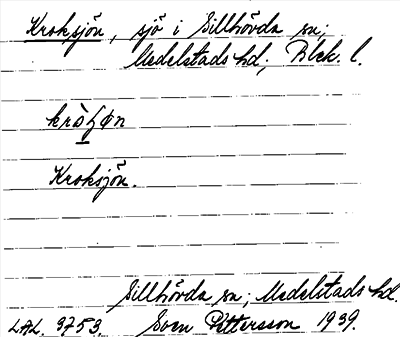 Kroksjön, sjö i Sillhövda sn;
Medelstads hd; Blek. l.
Kroksjön.
Sillhövda sn; Medelstads hd.
LAL. 3753. Sven Pettersson 1939.